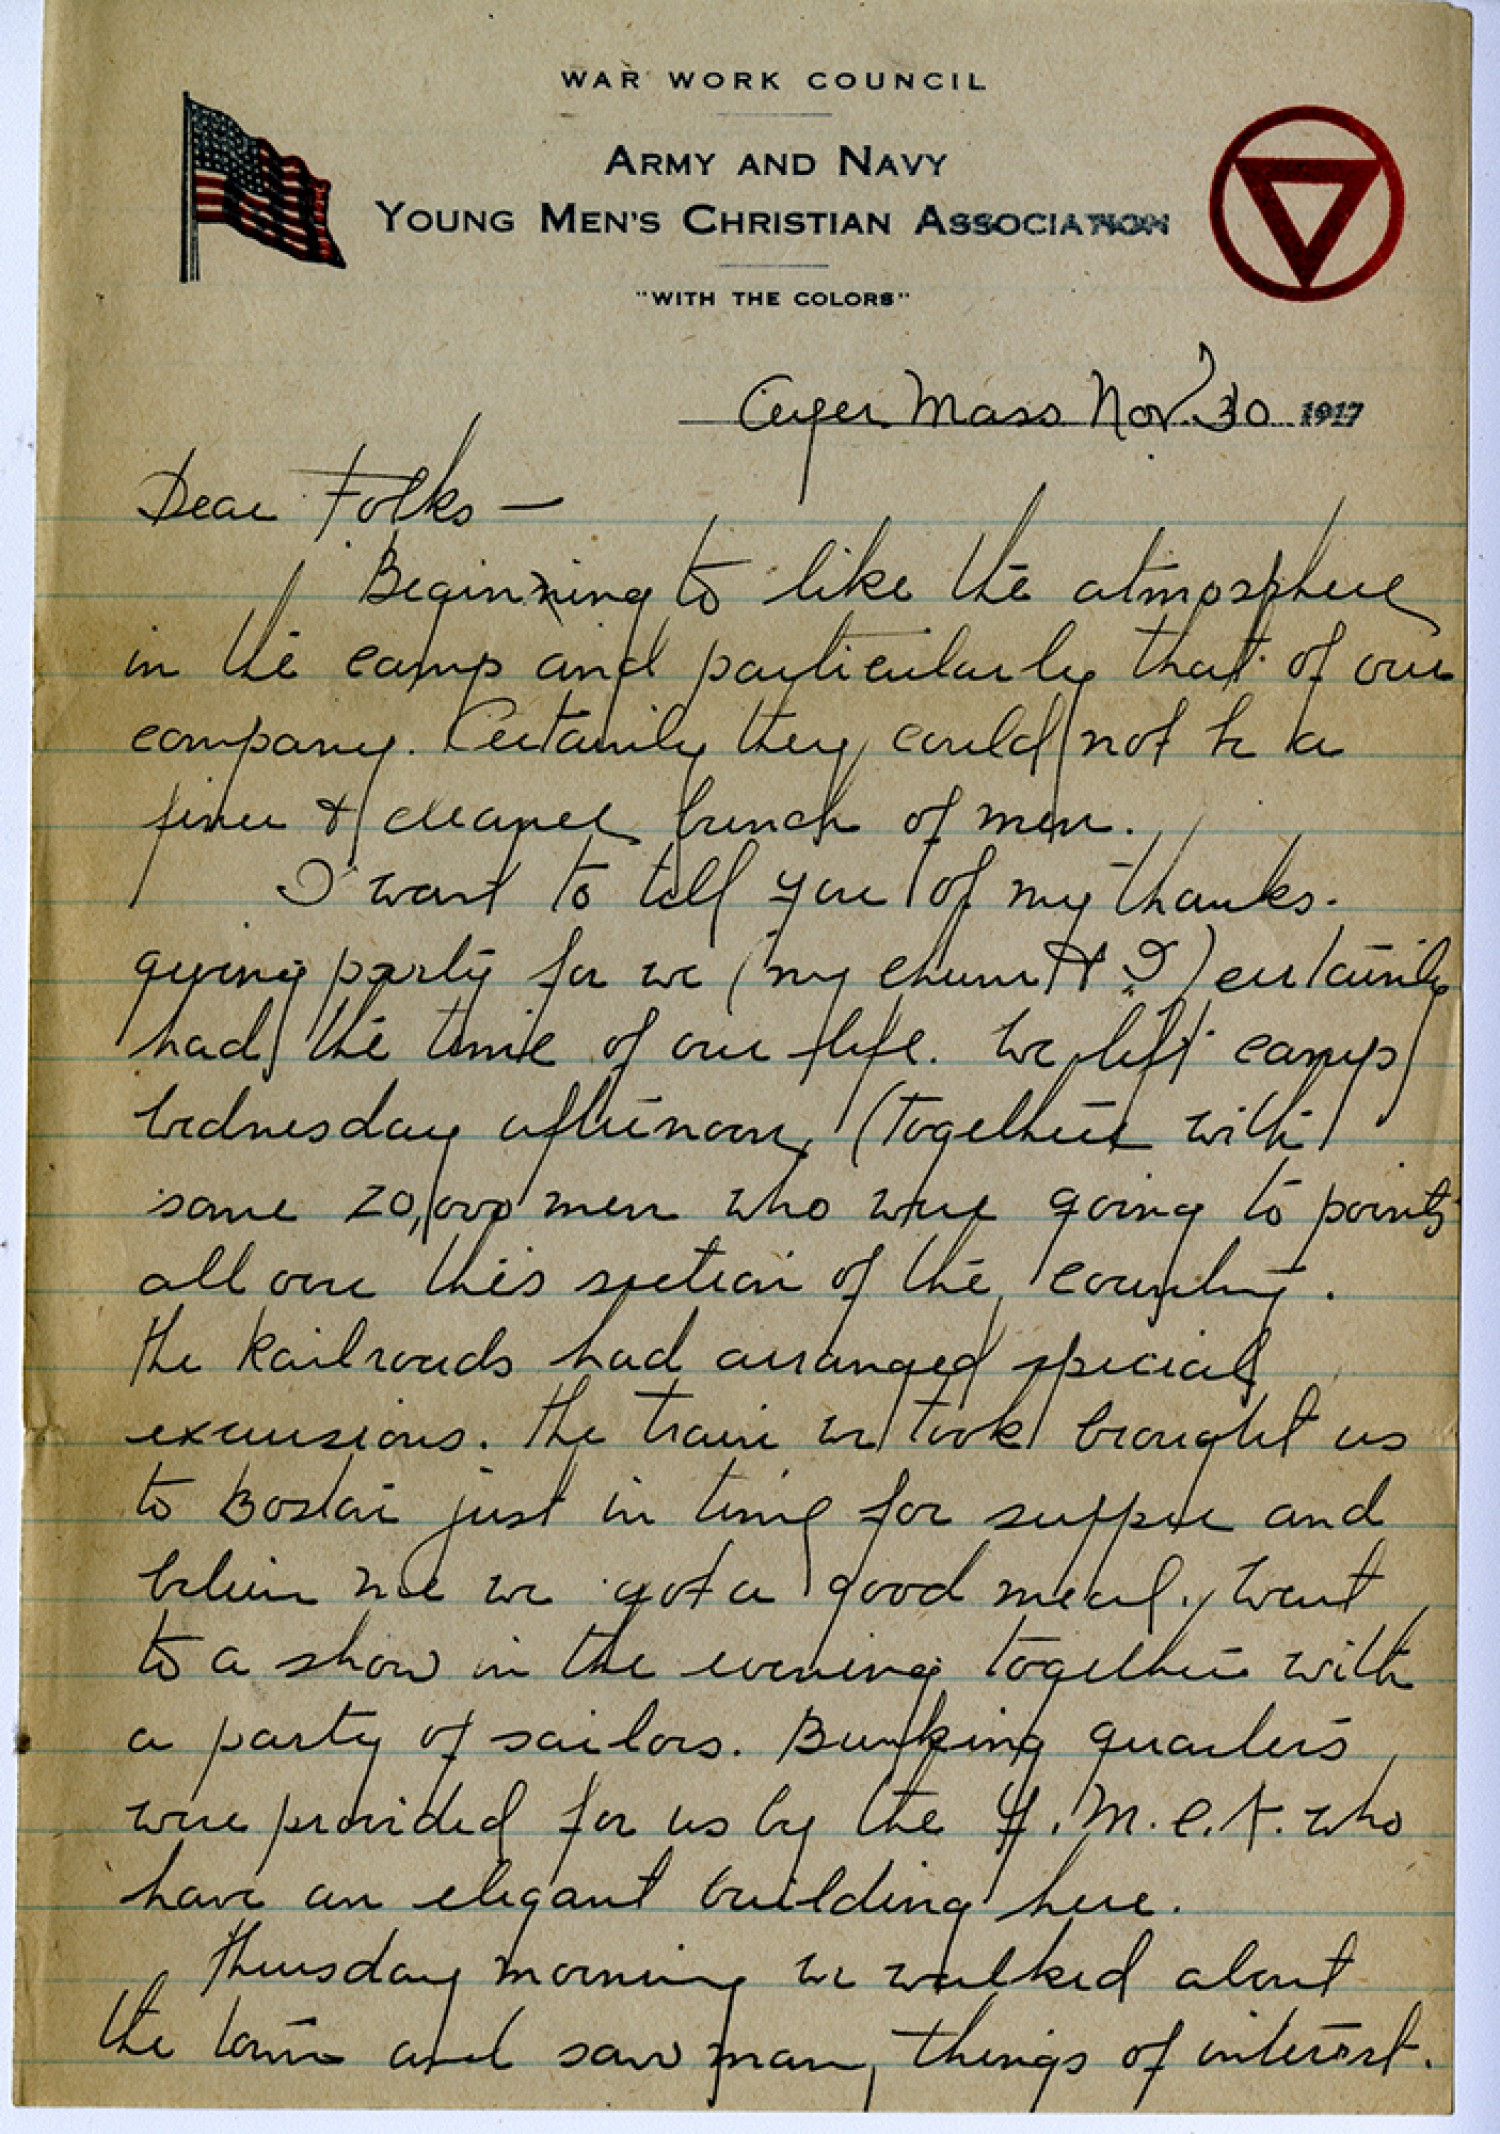 WAR WORK COUNCIL
ARMY AND NAVY
YOUNG MEN'S CHRISTIAN ASSOCIATION
"WITH THE COLORS"
Ayer Mass Nov. 30 1917
Dear Folks —
Beginning to like the atmosphere
in the camp and particularly that of our
company. Certainly they could not be a
finer & cleaner bunch of men.
I want to tell you of my thanks-
giving party for we (my chum & I) certainly
had the time of our life. We left camp
Wednesday afternoon, (together with
some 20,000 men who were going to points
all over this section of the country.
The Railroads had arranged special
excursions. The train we took brought us
to Boston just in time for supper and
believe me we got a good meal. Went
to a show in the evening together with
a party of sailors. Bunking quarters
were provided for us by the Y.M.C.A. who
have an elegant building here.
Thursday morning we walked about
the town and saw many things of interest.